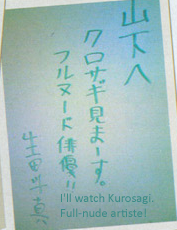 山下へ
クロサギ見まーす。
フルヌード俳優!!
生田斗真
I'll watch Kurosagi.
Full-nude artiste!